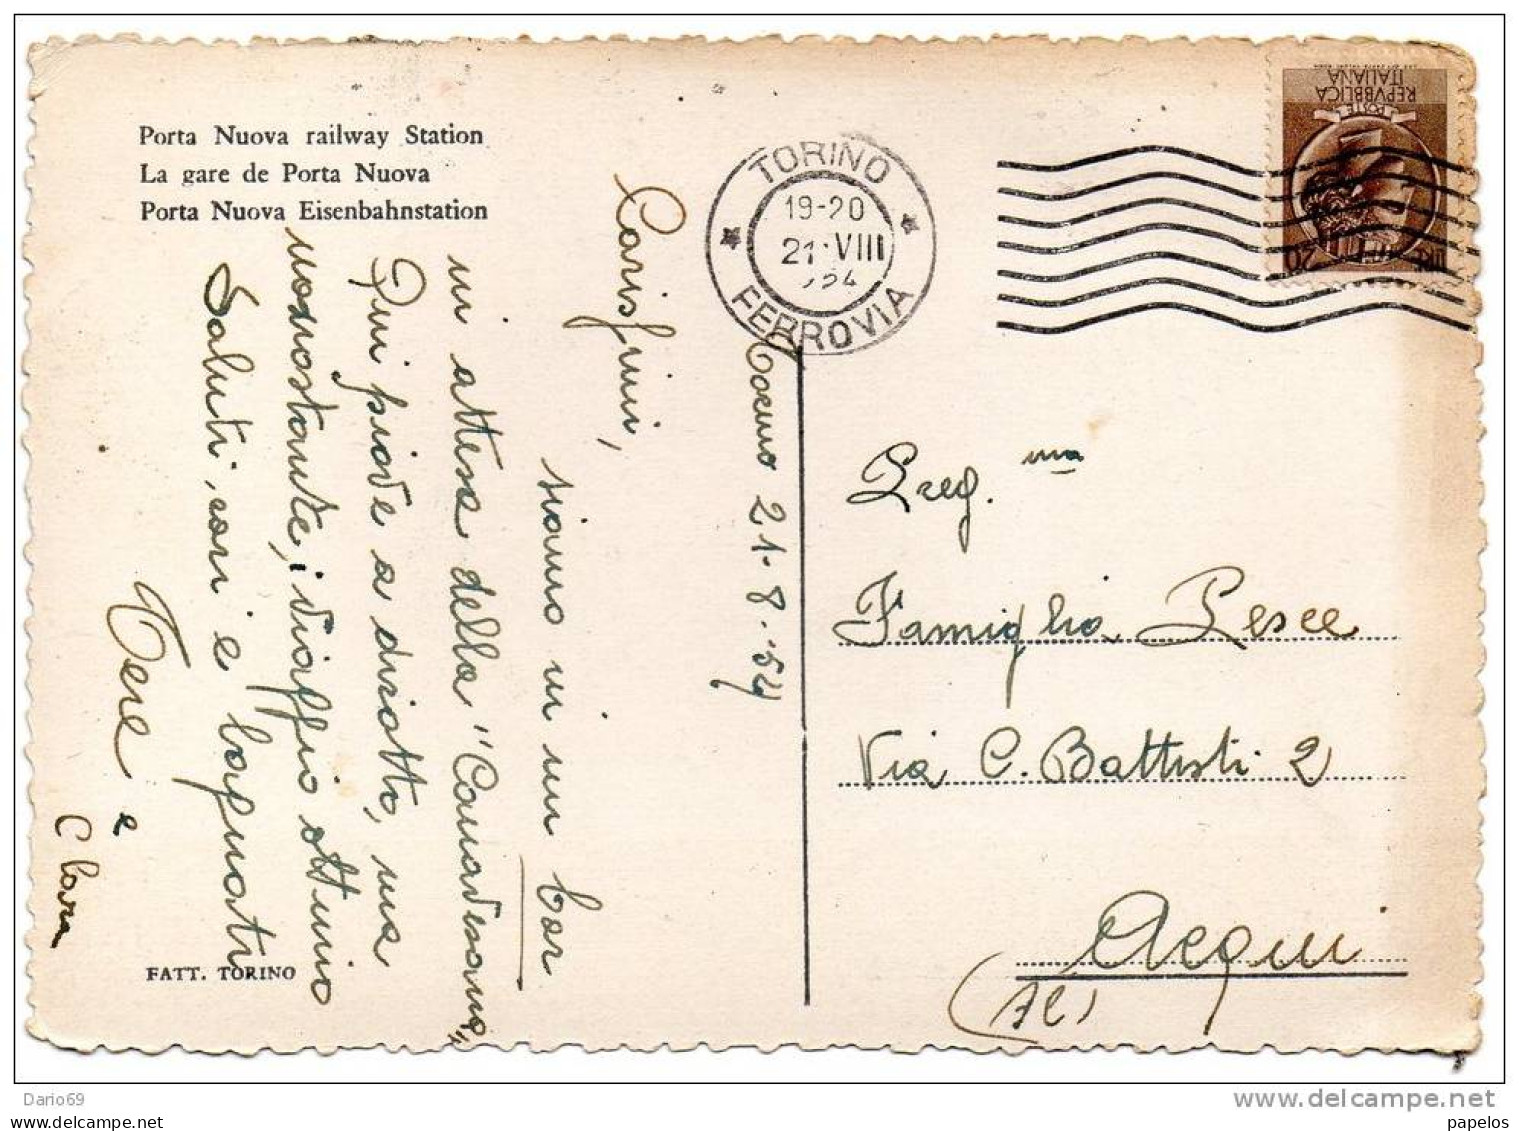 Porta Nuova railway Station
La gare de Porta Nuova
Porta Nuova Eisenbahnstation
TORINO
19-20
21·VIII
954
FERROVIA
REPVBBLICA
ITALIANA
POSTE
LIRE 20
Torino 21·8·'54
Carissimi,
siamo in un bar
in attesa della "Canavesana"
Qui piove a dirotto, ma
nonostante, viaggio ottimo
Saluti cari e bagnati
Tere e
Clara
FATT. TORINO
Preg. ma
Famiglia Pesce
Via C. Battisti 2
Acqui
(Al)
Dario69
www.delcampe.net
papelos